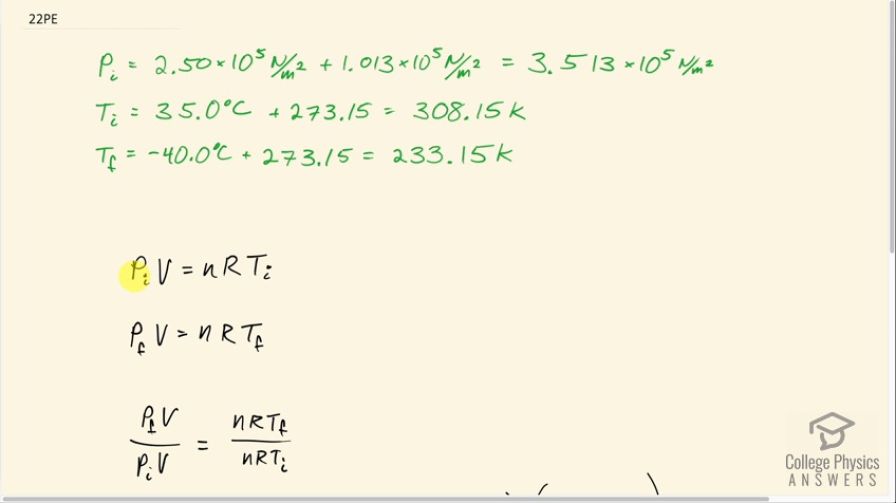 22PE
Pi = 2.50×10⁵ N/m² + 1.013×10⁵ N/m² = 3.513×10⁵ N/m²
Ti = 35.0°C + 273.15 = 308.15 K
Tf = -40.0°C + 273.15 = 233.15 K
Pi V = nRTi
Pf V = nRTf
Pf V / Pi V = nRTf / nRTi
College Physics
ANSWERS